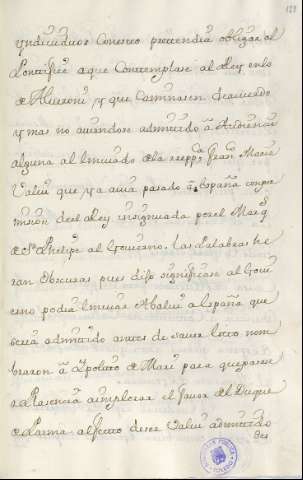 yndividuos con esto pretendia obligar al
Pontifice a que Contemplase al Rey en lo
de Alveroni y que Caminasen de acuerdo
y mas no aviendose admitido a
alguna al Imviado de la Juan Maria
Valvi que ya avia pasado a España con per
mision de el Rey insignuada por el Marq.
de Sn. Phelipe al Govierno. Las Palabras fue
ran obscuras pues dijo significase al Govi
erno podia Imviar A Balvi a España que
seria admitido antes de saver licito nom
braron a Ipolito de Mari para que pasase
a Plasencia a implorar el favor de el Duque
de Parma al fecto de ser Valvi admitido